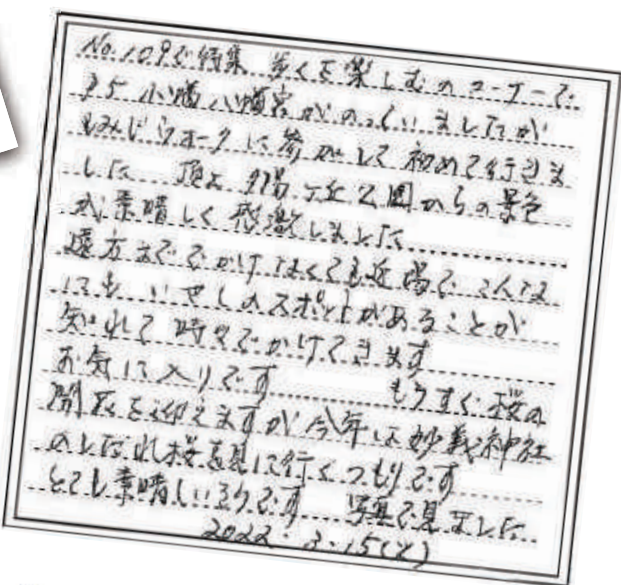 No.109で特集 歩くを楽しむのコーナーで
P5 小幡八幡宮がのっていましたが
もみじウォークに参加して初めて行きま
した 頂上 陽ヶ丘公園からの景色
が素晴しく感激しました
遠方まででかけなくても近場でこんな
にも いやしのスポットがあることが
知れて時々でかけてきます
お気に入りです もうすぐ桜の
開花を迎えますが今年は妙義神社
のしだれ桜を見に行くつもりです
とても素晴しい 写真で見ました
2022・3・15(火)